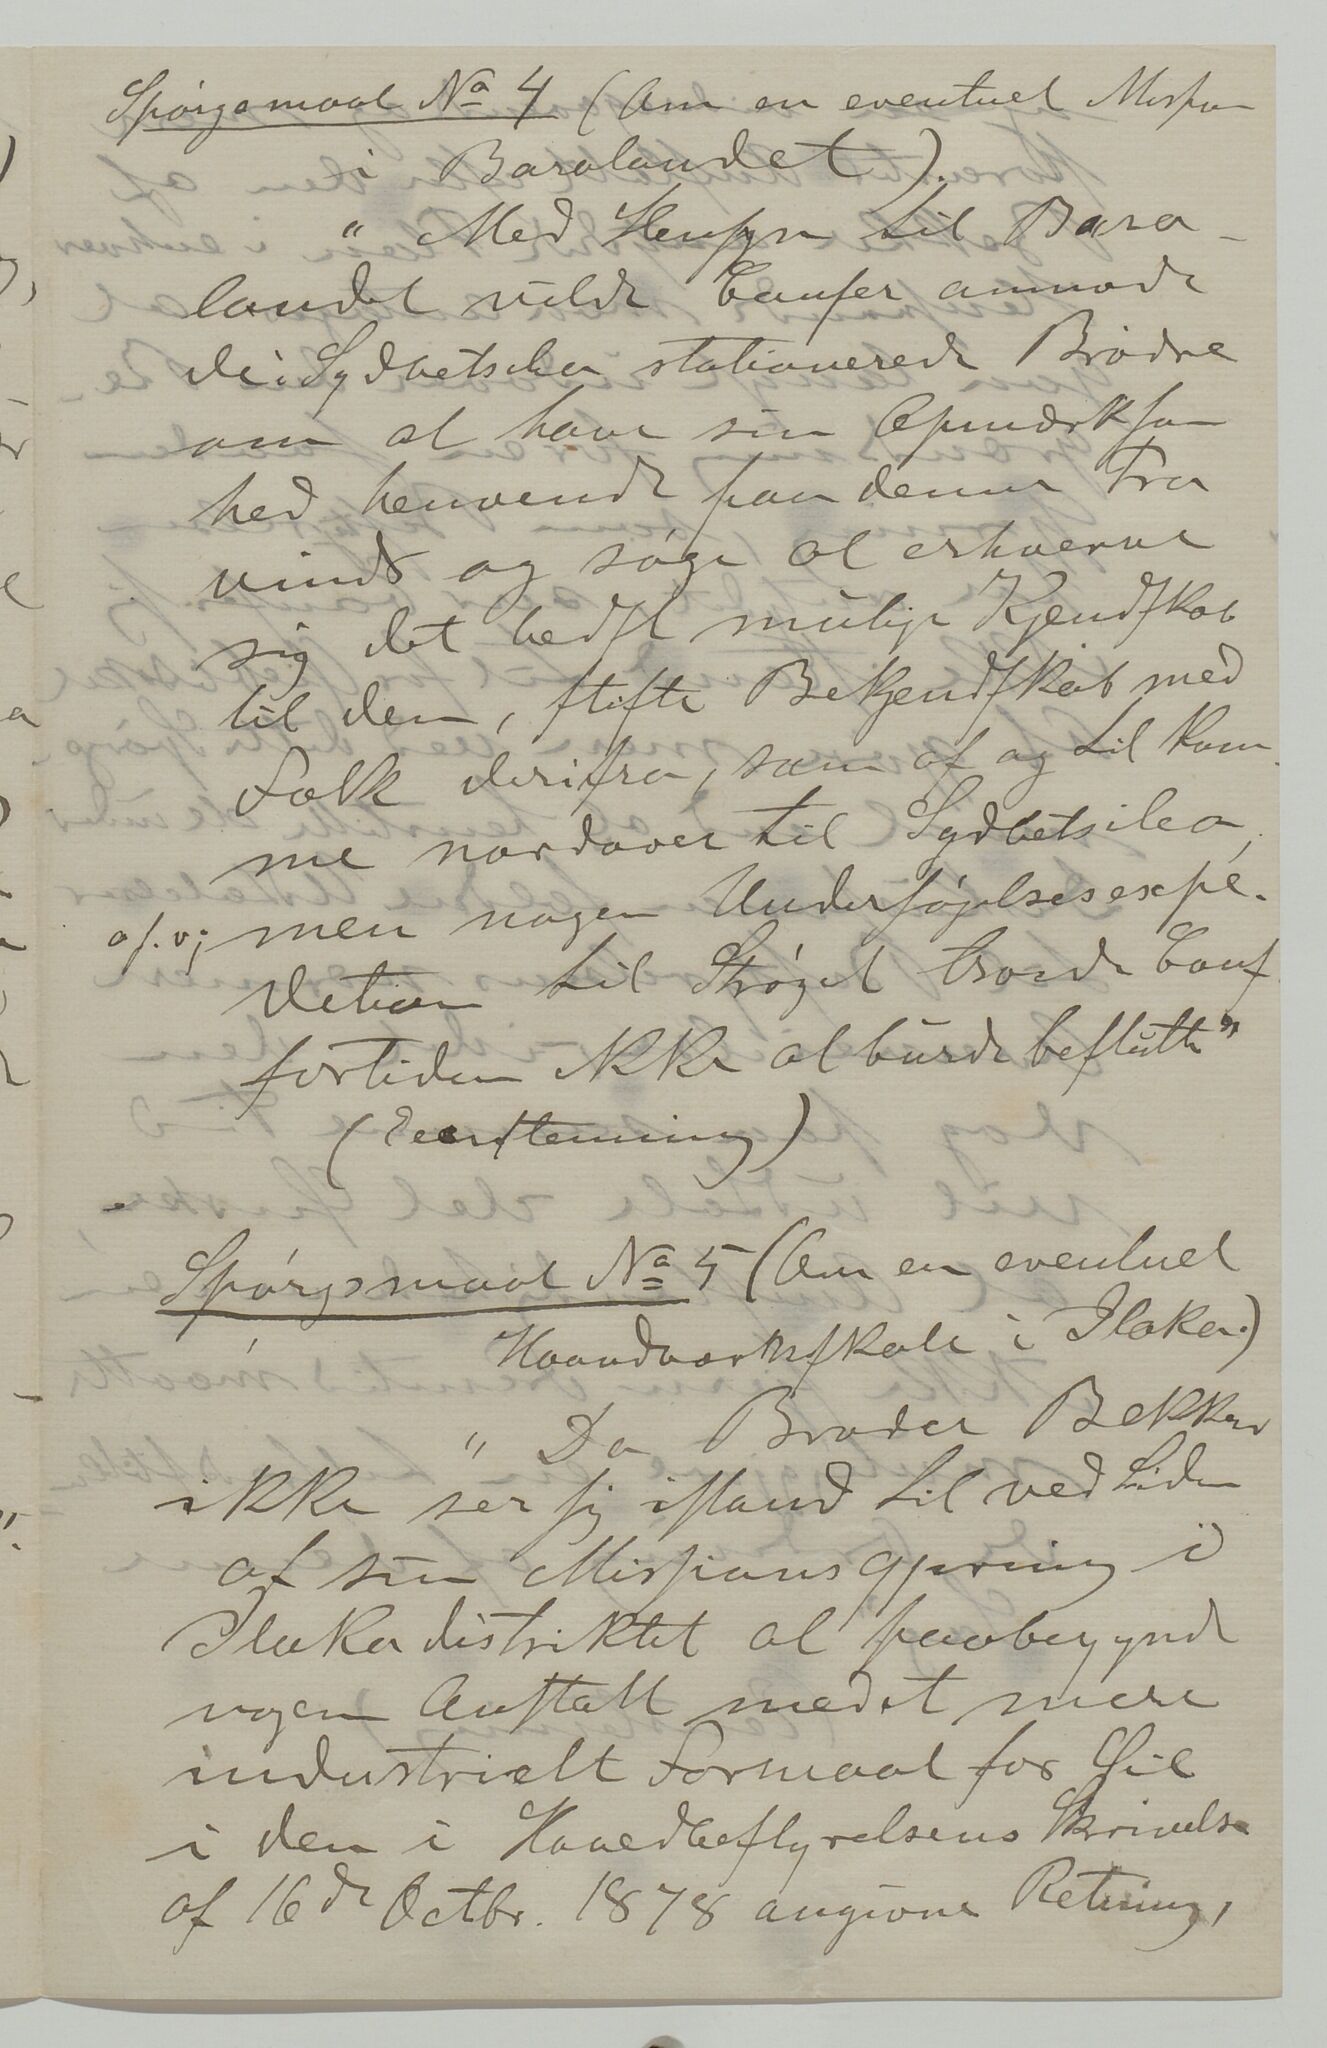 Spørgsmaal No 4 (Om en eventuel Mission
i Baralandet).
"Med Hensyn til Bara-
landet vilde Conferer anmode
de i Sydbetsileo stationerede Brødre
om at have sin Opmærksom
hed henvendt paa denne Pro
vinds og søge at erhverve
sig det bedst mulige Kjendskab
til den, stifte Bekjendskab med
Folk derifra, som af og til kom
me nordover til Sydbetsileo,
o.s.v; men nogen Undersøgelsesexpe-
dition til Strøget troede Conf
fortiden ikke at burde beslutte"
(Eenstemmig)
Spørgsmaal No 5 (Om en eventuel
Haandværksskole i Ilaka.)
"Da Broder Bekker
ikke ser sig istand til ved Siden
af sin Missionsgjerning i
Ilakadistriktet at paabegynde
nogen Anstalt med et mere
industrielt Formaal for Øie
i den i Hovedbestyrelsens Skrivelse
af 16de Octbr. 1878 angivne Retning,